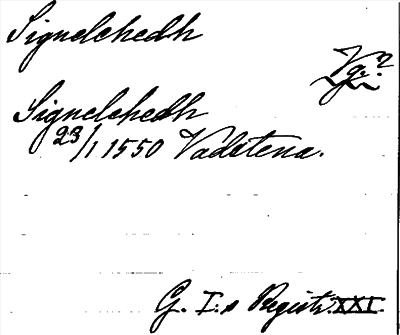 Signelehedh
Vg.?
Signelehedh
23/1 1550 Vadstena.
G. I:s Registr. XXI.